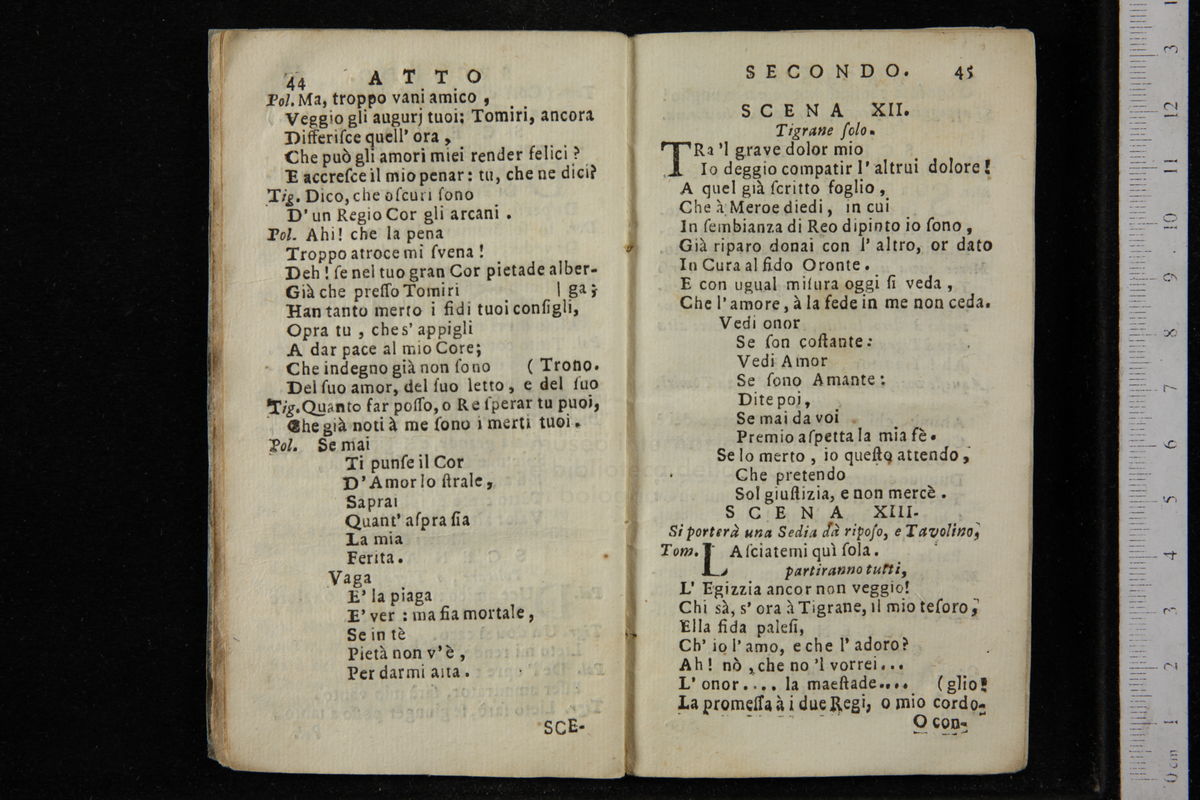 44 ATTO
Pol. Ma, troppo vani amico,
Veggio gli augurj tuoi; Tomiri, ancora
Differiſce quell' ora,
Che può gli amori miei render felici?
E accreſce il mio penar: tu, che ne dici?
Tig. Dico, che oſcuri ſono
D' un Regio Cor gli arcani.
Pol. Ahi! che la pena
Troppo atroce mi ſvena!
Deh! ſe nel tuo gran Cor pietade alber-
Già che preſſo Tomiri | ga;
Han tanto merto i fidi tuoi conſigli,
Opra tu, che s' appigli
A dar pace al mio Core;
Che indegno già non ſono ( Trono.
Del ſuo amor, del ſuo letto, e del ſuo
Tig. Quanto far poſſo, o Re ſperar tu puoi,
Che già noti à me ſono i merti tuoi.
Pol. Se mai
Ti punſe il Cor
D' Amor lo ſtrale,
Saprai
Quant' aſpra ſia
La mia
Ferita.
Vaga
E' la piaga
E' ver : ma ſia mortale,
Se in tè
Pietà non v' è,
Per darmi aita.
SCE-
SECONDO. 45
SCENA XII.
Tigrane ſolo.
TRa 'l grave dolor mio
Io deggio compatir l' altrui dolore!
A quel già ſcritto foglio,
Che à Meroe diedi, in cui
In ſembianza di Reo dipinto io ſono,
Già riparo donai con l' altro, or dato
In Cura al fido Oronte.
E con ugual miſura oggi ſi veda,
Che l' amore, à la fede in me non ceda.
Vedi onor
Se ſon coſtante:
Vedi Amor
Se ſono Amante:
Dite poi,
Se mai da voi
Premio aſpetta la mia fè.
Se lo merto, io queſto attendo,
Che pretendo
Sol giuſtizia, e non mercè.
SCENA XIII.
Si porterà una Sedia dà ripoſo, e Tavolino,
Tom. LAſciatemi quì ſola.
partiranno tutti,
L' Egizzia ancor non veggio!
Chi sà, s' ora à Tigrane, il mio teſoro,
Ella fida paleſi,
Ch' io l' amo, e che l' adoro?
Ah! nò, che no 'l vorrei...
L' onor.... la maeſtade.... (glio!
La promeſſa à i due Regi, o mio cordo-
O con-